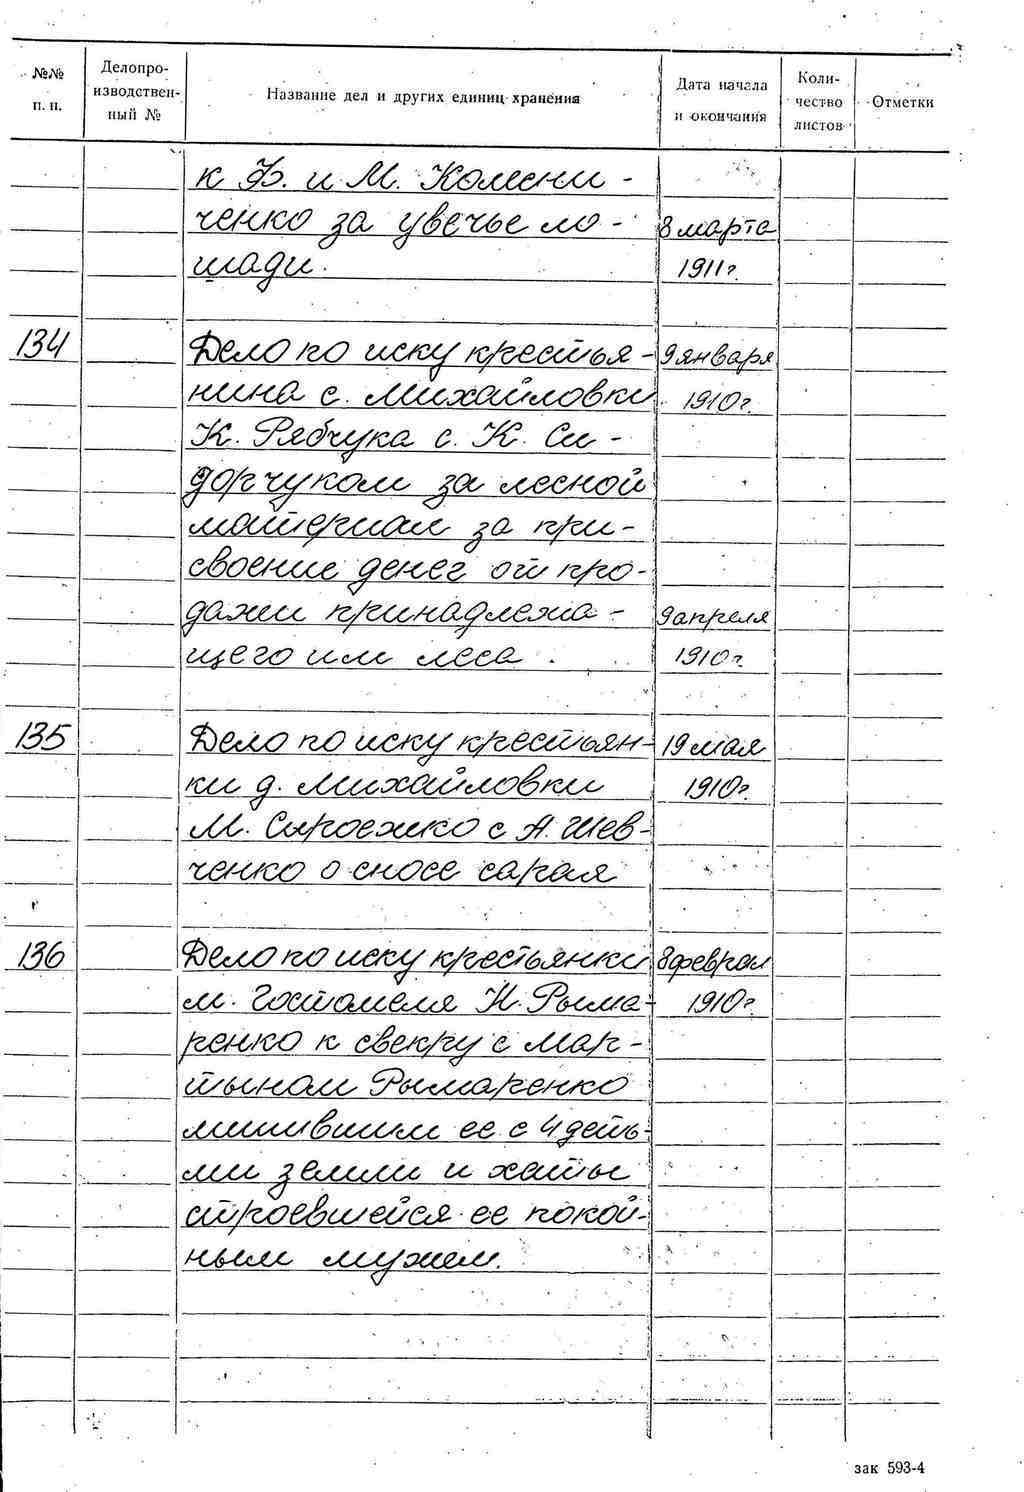 №№ п. п. Делопроизводственный № Название дел и других единиц хранения Дата начала и окончания Количество листов Отметки
к Ф. и М. Колесни-
ченко за увечье ло- 8 марта
шади. 1911г.
134 Дело по иску крестья- 9 января
нина с. Михайловки 1910г.
К. Рябчука с. К. Си-
дорчуком за лесной
материал за при-
своение денег от про-
дажи принадлежа- 9 апреля
щего им леса. 1910г.
135 Дело по иску крестьян- 19 мая
ки д. Михайловки 1910г.
М. Сыроежко с А. Шев-
ченко о сносе сарая
136 Дело по иску крестьянки 8 феврал
м. Гостомеля Н. Рыма- 1910г.
ренко к свекру с Мар-
тыном Рымаренко
лишившим ее с 4 деть-
ми земли и хаты
строевшейся ее покой-
ным мужем.
зак 593-4